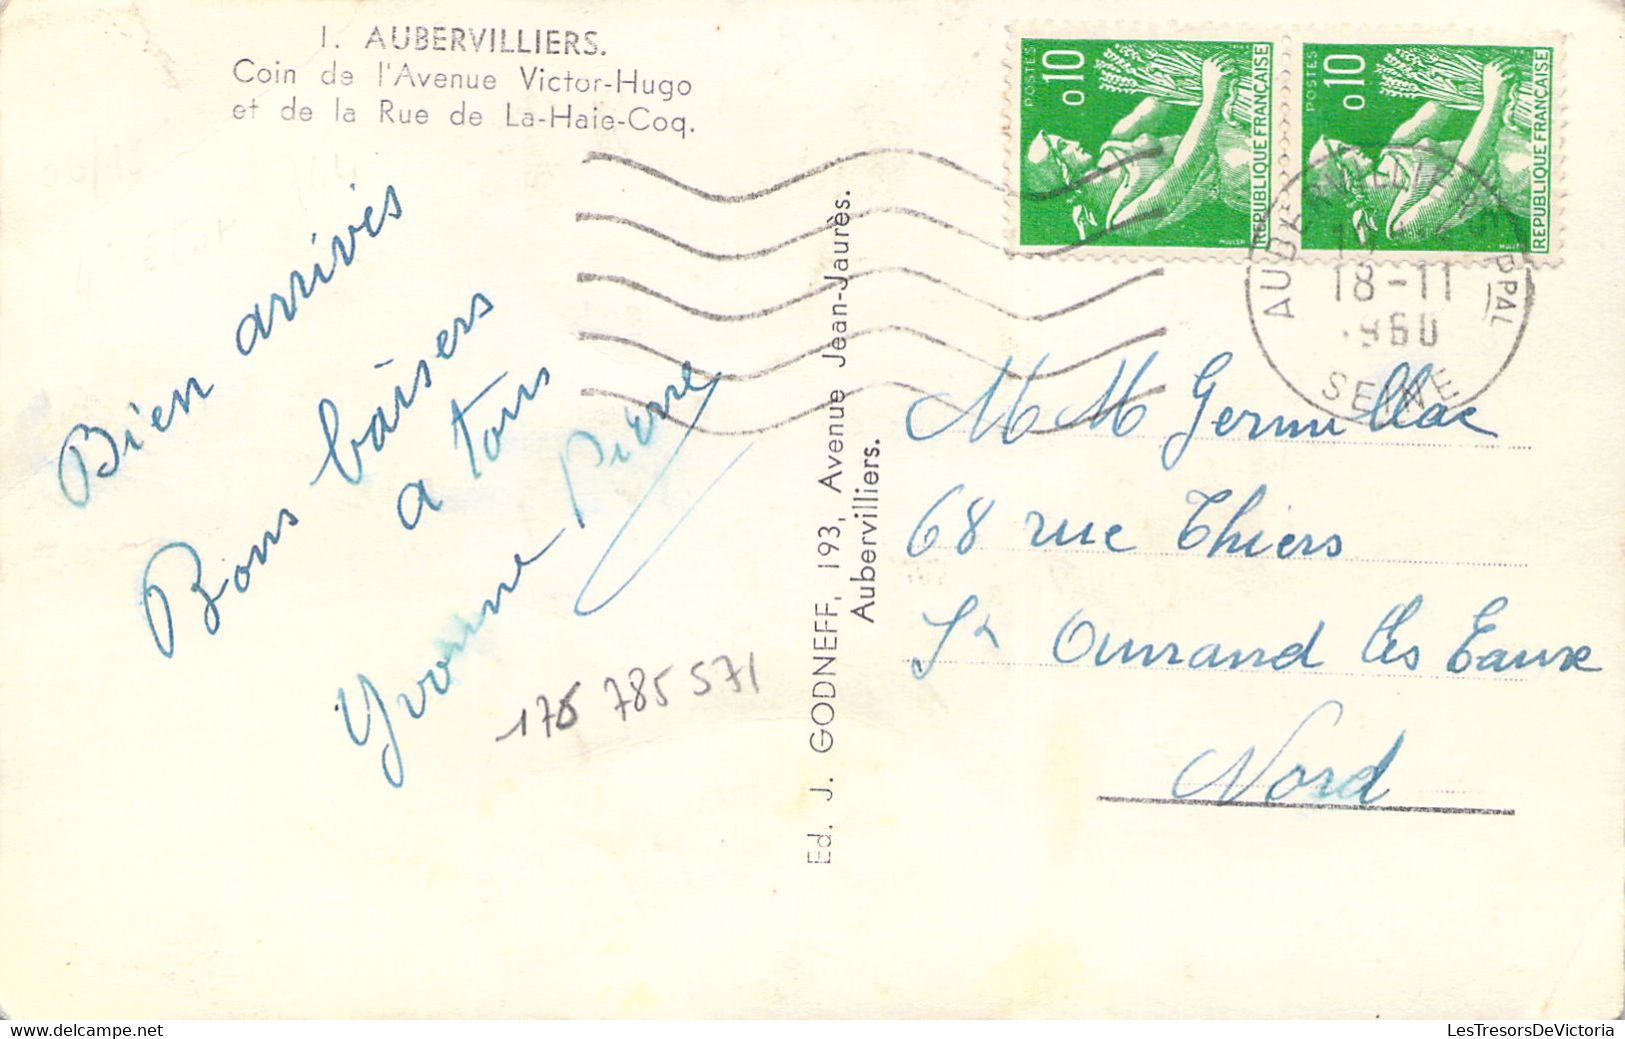 1. AUBERVILLIERS.
Coin de l'Avenue Victor-Hugo
et de la Rue de La-Haie-Coq.
Bien arrivés
Bons baisers
a tous
Yvonne Pierre
175 785 571
Ed. J. GODNEFF, 193, Avenue Jean-Jaurès.
Aubervilliers.
POSTES
0,10
REPUBLIQUE FRANÇAISE
MULLER
POSTES
0,10
REPUBLIQUE FRANÇAISE
MULLER
AUBERVILLIERS PPAL
18-11
1960
SEINE
M M Germillac
68 rue Thiers
St Amand les Eaux
Nord
LesTresorsDeVictoria